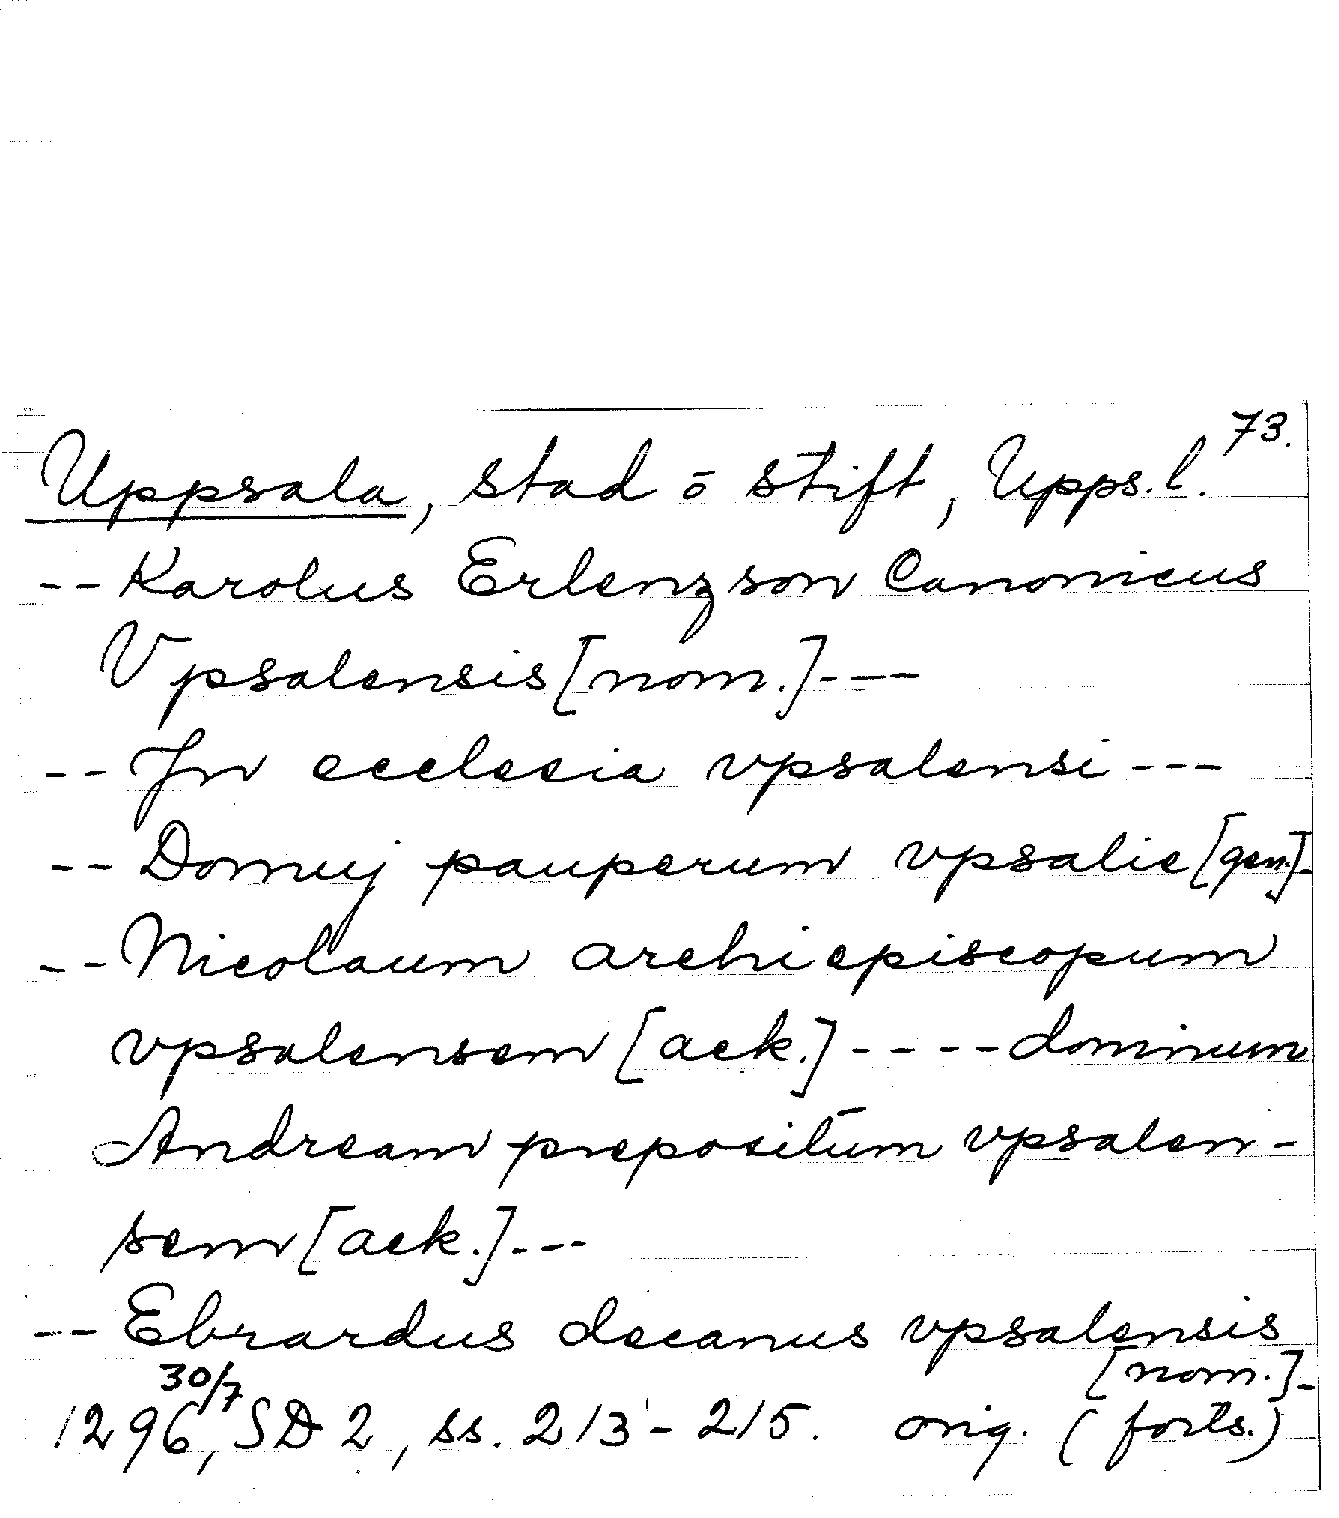 73.
Uppsala, stad o stift, Upps.l.
-- Karolus Erlengson Canonicus
Vpsalensis [nom.] ---
-- Jn ecclesia vpsalensi ---
-- Domuj pauperum vpsalie [gen.]-
-- Nicolaum archiepiscopum
vpsalensem [ack.] ---- dominum
Andream prepositum vpsalen-
sem [ack.] ---
-- Ebrardus decanus vpsalensis
[nom.]-
1296 30/7, SD 2, ss. 213-215. orig. (forts.)